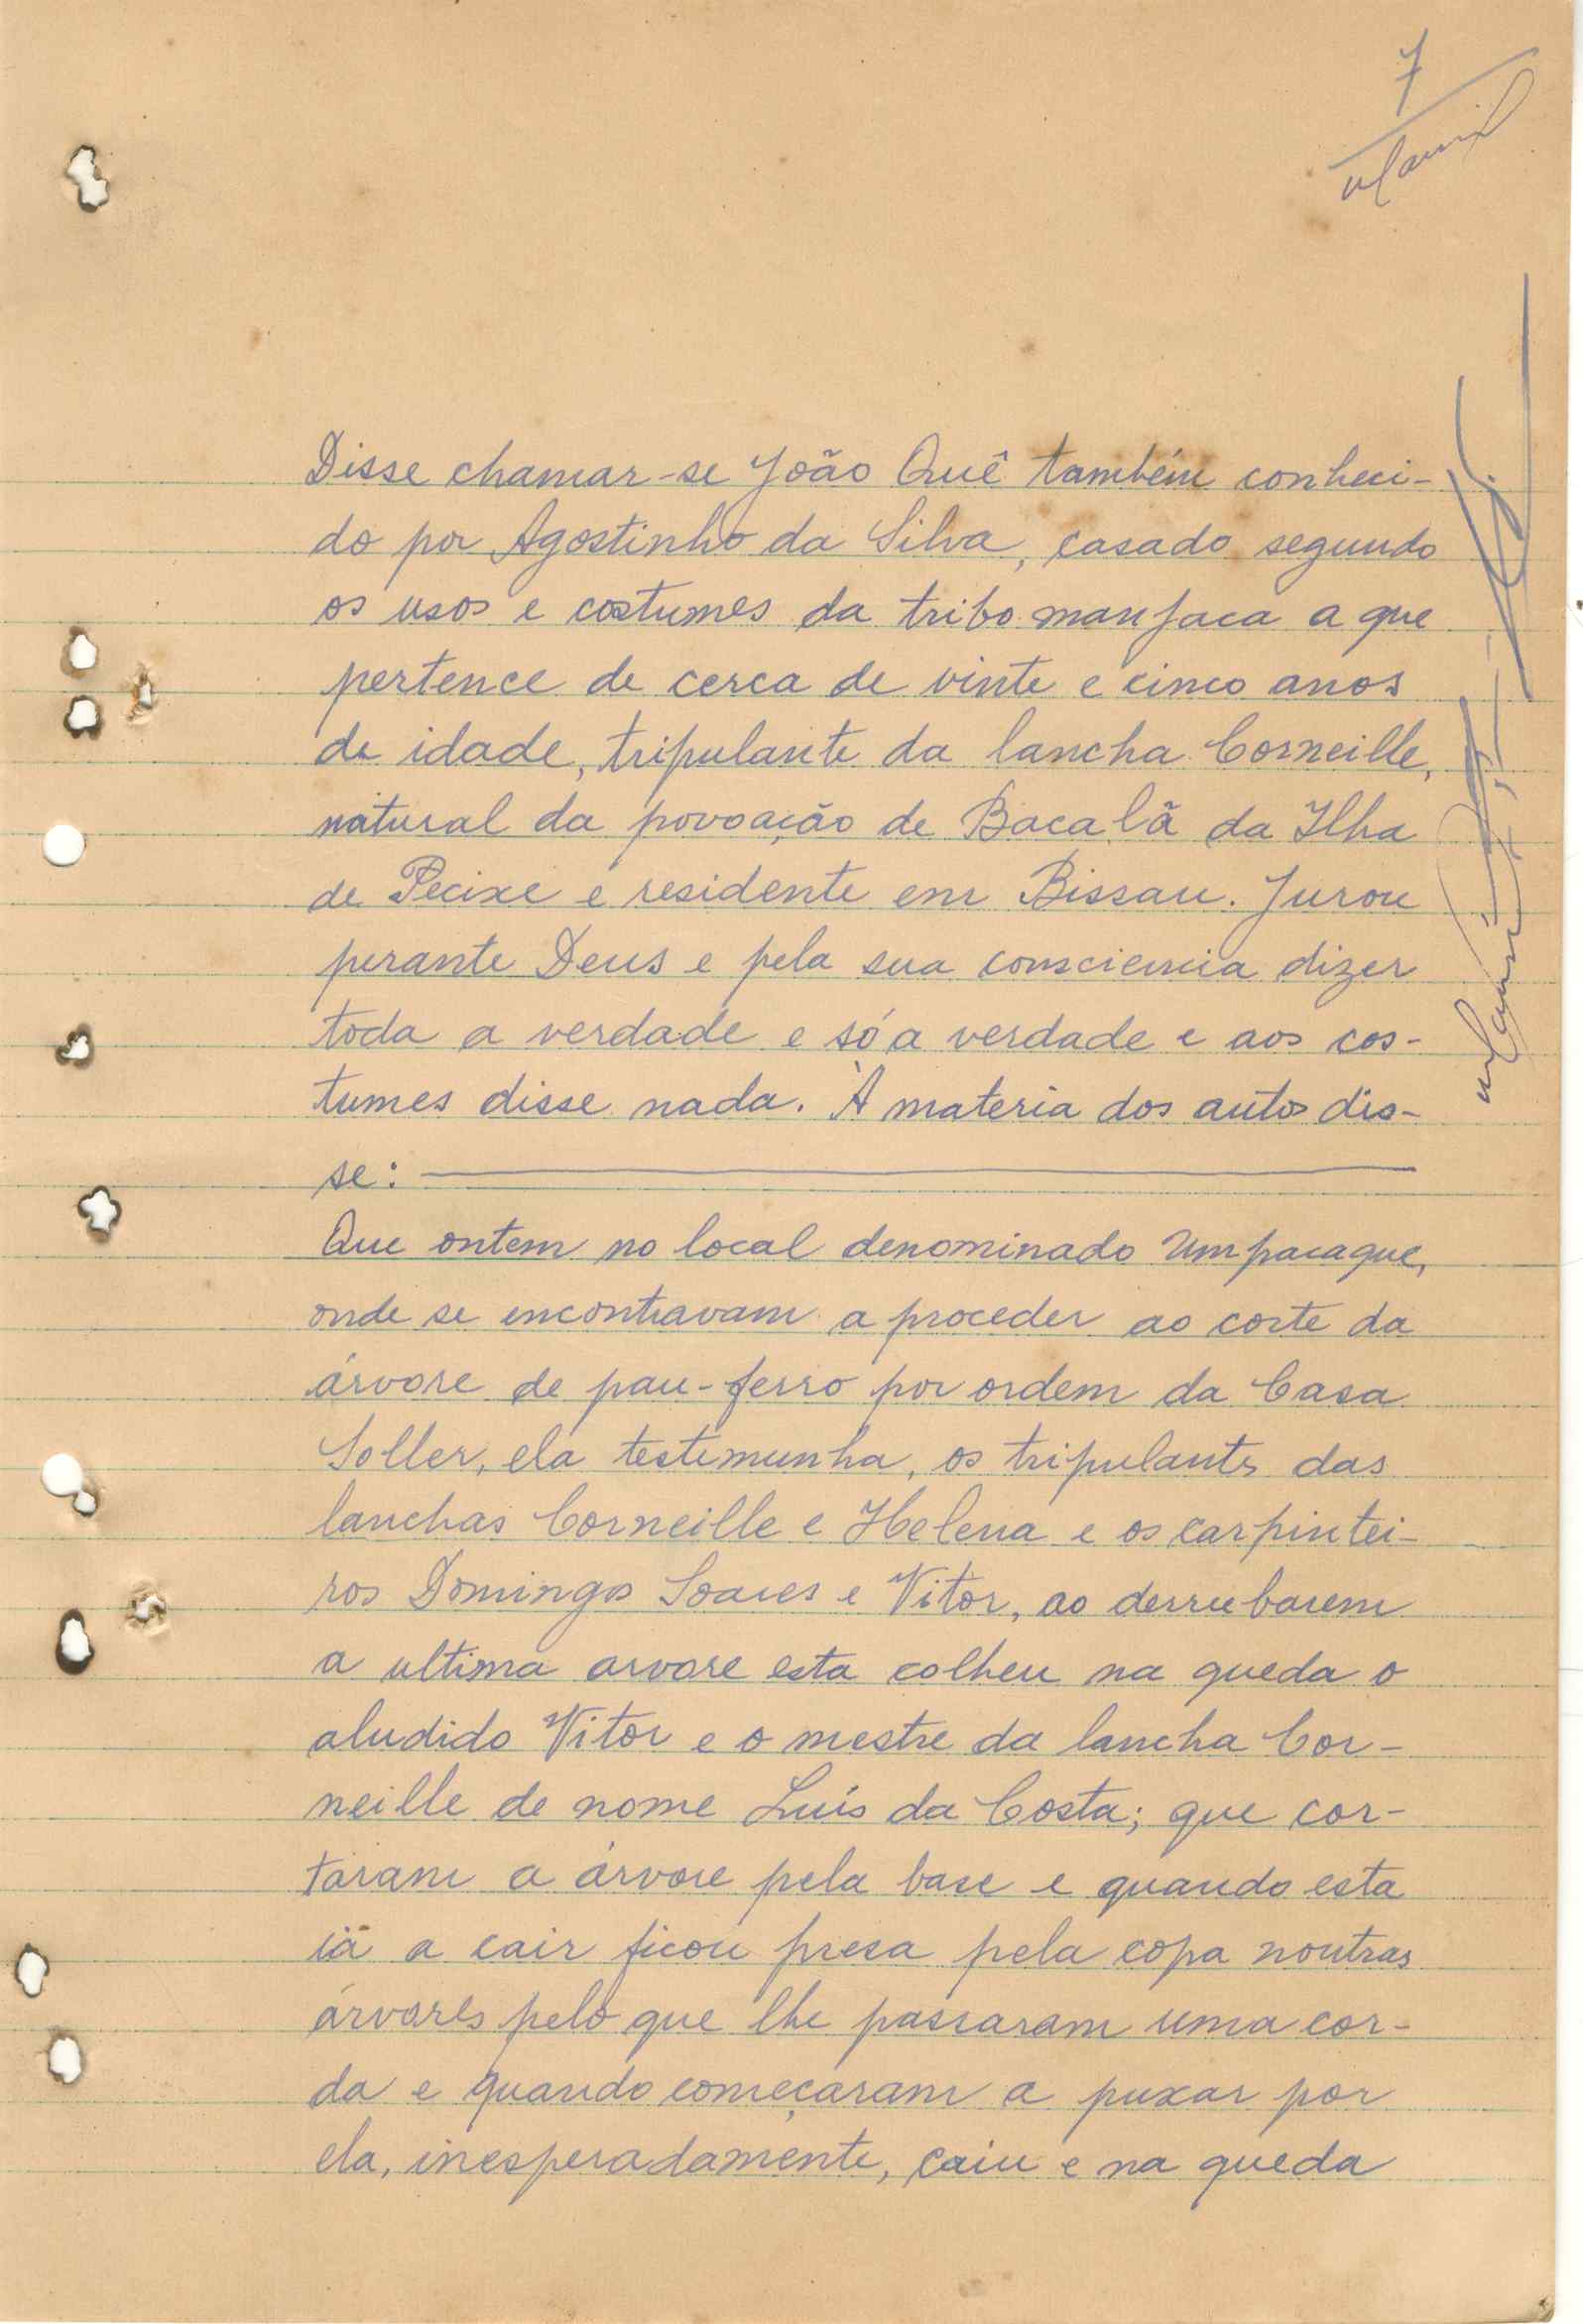 7
Disse chamar-se João Quê também conheci-
do por Agostinho da Silva, casado segundo
os usos e costumes da tribo manjaca a que
pertence de cerca de vinte e cinco anos
de idade, tripulante da lancha Corneille,
natural da povoação de Bacalã da Ilha
de Pecixe e residente em Bissau. Jurou
perante Deus e pela sua consciencia dizer
toda a verdade e só a verdade e aos cos-
tumes disse nada. À materia dos autos dis-
se:
Que ontem no local denominado Umpacaque,
onde se encontravam a proceder ao corte da
árvore de pau-ferro por ordem da Casa
Soller, ela testemunha, os tripulantes das
lanchas Corneille e Helena e os carpintei-
ros Domingos Soares e Vitor, ao derrubarem
a ultima arvore esta colheu na queda o
aludido Vitor e o mestre da lancha Cor-
neille de nome Luís da Costa; que cor-
taram a árvore pela base e quando esta
iá a cair ficou presa pela copa noutras
árvores pelo que lhe passaram uma cor-
da e quando começaram a puxar por
ela, inesperadamente, caiu e na queda